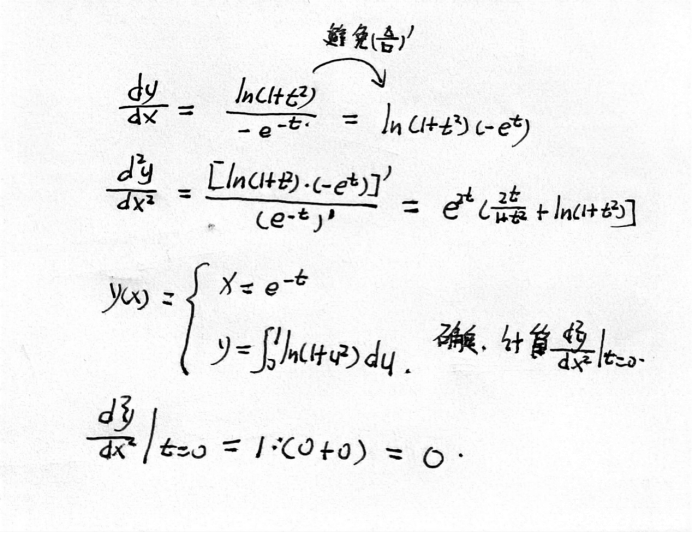 避免(△/□)'
dy/dx = ln(1+t²)/(-e^{-t}) = ln(1+t²)(-e^t)
d²y/dx² = [ln(1+t²)·(-e^t)]'/(e^{-t})' = e^{2t}(2t/(1+t²) + ln(1+t²)]
y(x) = { x = e^{-t}
y = ∫₀¹ ln(1+u²) du. 确定, 计算 d²y/dx²|t=0.
d²y/dx²|t=0 = 1·(0+0) = 0.